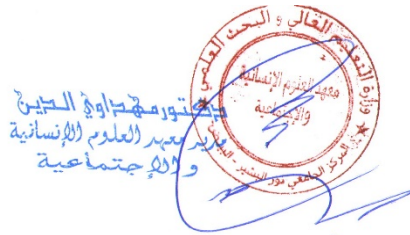 وزارة التعليم العالي و البحث العلمي
معهد العلوم الإنسانية
والإجتماعية
المركز الجامعي نور البشير - البيض
دكتور مهداوي الدين
مدير معهد العلوم الإنسانية
و الإجتماعية